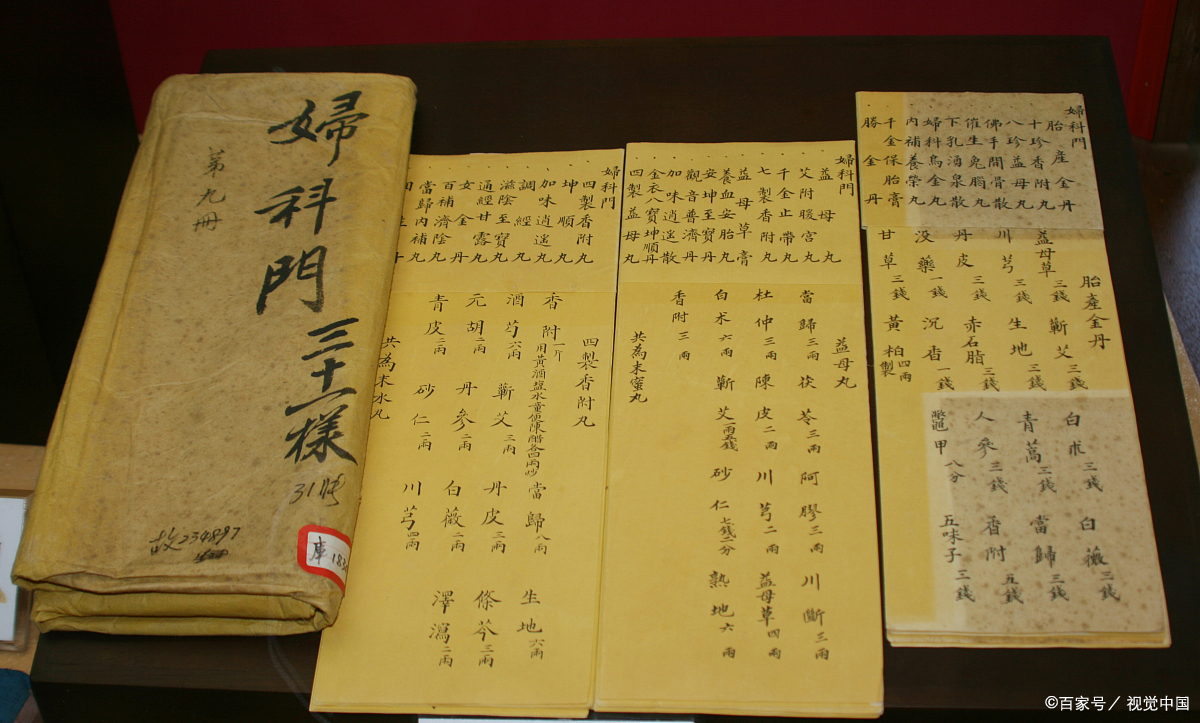 婦科門三十一樣
第九冊
31張
故234897
庫
婦科門
四製香附丸
坤順丸
加味逍遥丸
調經丸
滋陰至寶丸
通經甘露丸
女金丹
百補濟陰丸
當歸內補丸
四製香附丸
香附一斤用黃酒塩水童便陳醋各四兩炒 當歸八兩 生地六兩
酒芍六兩 蘄艾三兩 丹皮三兩 條芩三兩
元胡二兩 丹參二兩 白薇二兩 澤瀉二兩
青皮二兩 砂仁二兩 川芎四兩
共為末水丸
婦科門
益母丸
艾附暖宮丸
千金止帶丸
七製香附丸
益母草膏
養血安胎丸
安坤至寶丹
觀音普濟丹
加味逍遥散
金衣八寶坤順丹
四製益母丸
益母丸
當歸三兩 茯苓三兩 阿膠三兩 川斷三兩
杜仲三兩 陳皮二兩 川芎二兩 益母草四兩
白朮六兩 蘄艾一兩五錢 砂仁七錢二分 熟地六兩
香附三兩
共為末蜜丸
婦科門
胎產金丹
十珍香附丸
八珍益母丸
佛手開骨散
催生兔腦丸
下乳湧泉散
婦科烏金丸
內補養榮丸
千金保胎膏
勝金丹
胎產金丹
益母草三錢 蘄艾三錢 白朮三錢 白薇三錢
川芎三錢 生地三錢 青蒿三錢 當歸三錢
丹皮三錢 赤石脂三錢 人參三錢 香附五錢
没藥一錢 沉香一錢 鱉甲八分 五味子三錢
甘草三錢 黃柏四兩製
©百家号／视觉中国